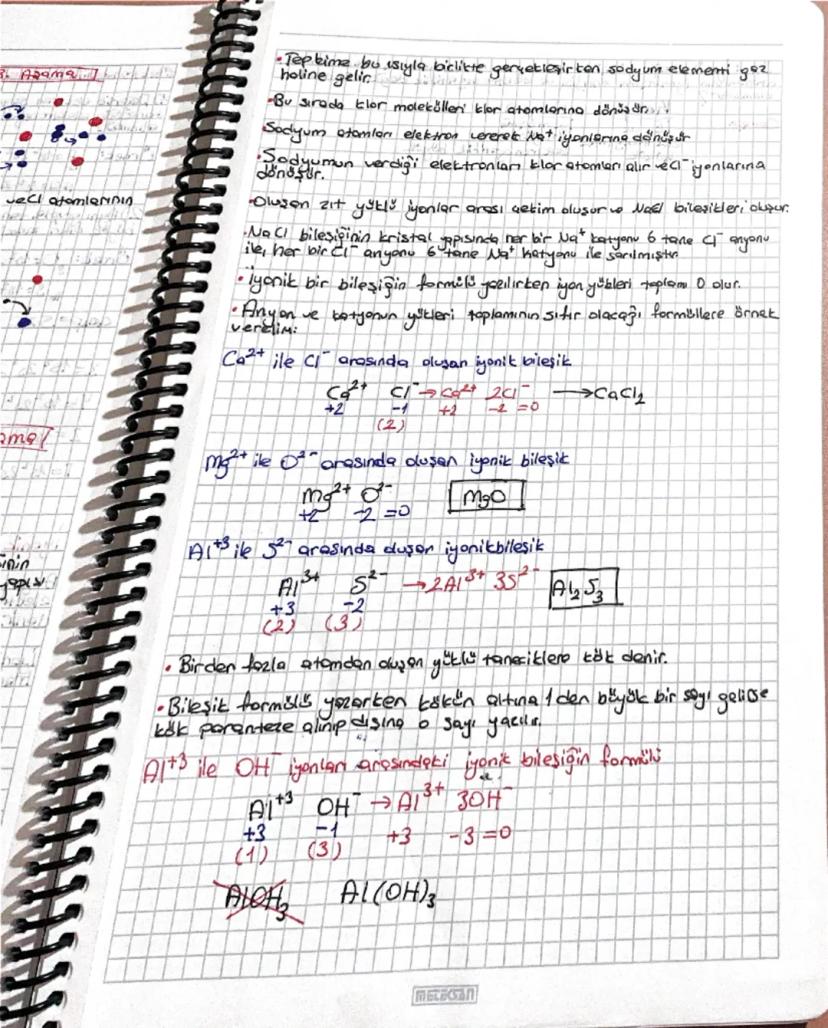 Aşama
ve Cl atomlarının
• Tepkime bu ısıyla birlikte gerçekleşirken sodyum elementi gaz
haline gelir.
• Bu sırada klor molekülleri klor atomlarına dönüşür.
Sodyum atomları elektron vererek Na⁺ iyonlarına dönüşür
• Sodyumun verdiği elektronları klor atomları alır ve Cl⁻ iyonlarına
dönüşür.
• Oluşan zıt yüklü iyonlar arası çekim oluşur ve NaCl bileşikleri oluşur.
• NaCl bileşiğinin kristal yapısında her bir Na⁺ katyonu 6 tane Cl⁻ anyonu
ile, her bir Cl⁻ anyonu 6 tane Na⁺ katyonu ile sarılmıştır
• İyonik bir bileşiğin formülü yazılırken iyon yükleri toplamı 0 olur.
• Anyon ve katyonun yükleri toplamının sıfır olacağı formüllere örnek
verelim:
Ca²⁺ ile Cl⁻ arasında oluşan iyonik bileşik
Ca²⁺ Cl⁻ → Ca²⁺ 2Cl⁻ → CaCl₂
+2 -1 +2 -2 =0
(2)
Mg²⁺ ile O²⁻ arasında oluşan iyonik bileşik
Mg²⁺ O²⁻ MgO
+2 -2 =0
Al⁺³ ile S²⁻ arasında oluşan iyonik bileşik
Al³⁺ S²⁻ → 2Al³⁺ 3S²⁻ Al₂S₃
+3 -2
(2) (3)
• Birden fazla atomdan oluşan yüklü taneciklere kök denir.
• Bileşik formülü yazarken kökün altına 1 den büyük bir sayı gelirse
kök paranteze alınıp dışına o sayı yazılır.
Al⁺³ ile OH⁻ iyonları arasındaki iyonik bileşiğin formülü
Al⁺³ OH⁻ → Al³⁺ 3OH⁻
+3 -1 +3 -3 =0
(1) (3)
AlOH₃ Al(OH)₃
METEKSAN